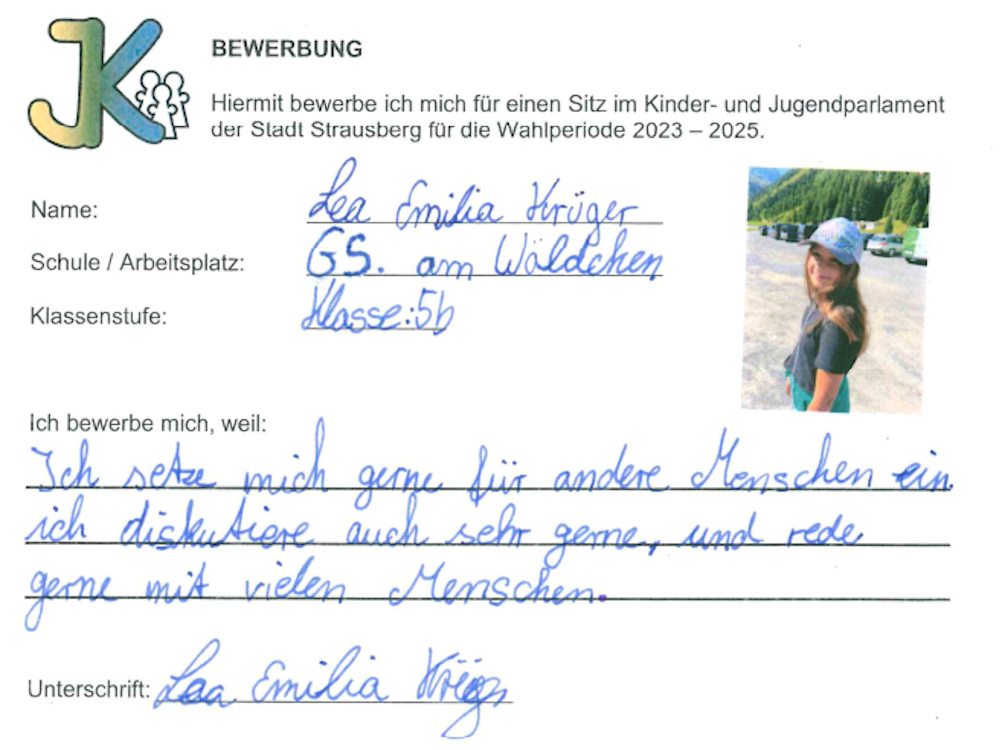 JK
BEWERBUNG
Hiermit bewerbe ich mich für einen Sitz im Kinder- und Jugendparlament
der Stadt Strausberg für die Wahlperiode 2023 – 2025.
Name: Lea Emilia Krüger
Schule / Arbeitsplatz: GS. am Wäldchen
Klassenstufe: Klasse:5b
Ich bewerbe mich, weil:
Ich setze mich gerne für andere Menschen ein.
ich diskutiere auch sehr gerne, und rede
gerne mit vielen Menschen.
Unterschrift: Lea Emilia Krüger